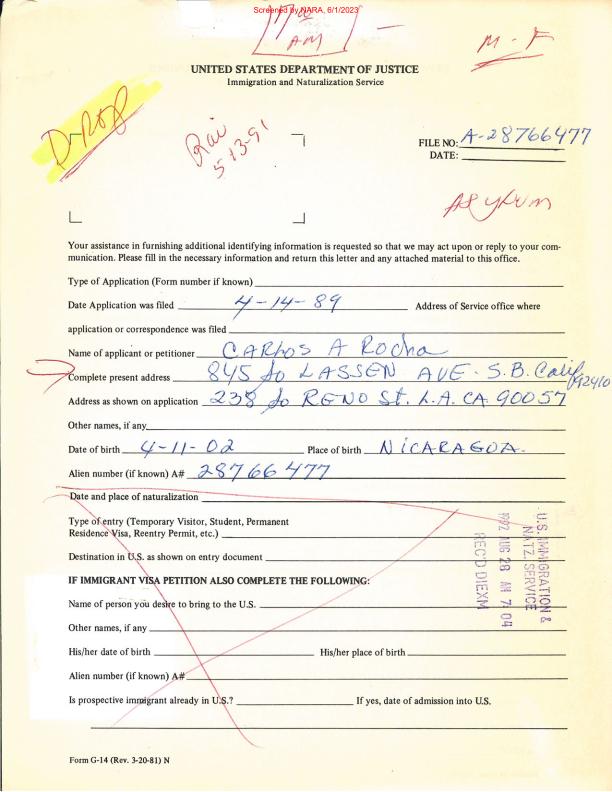 Screened by NARA, 6/1/2023
AM
M - F
UNITED STATES DEPARTMENT OF JUSTICE
Immigration and Naturalization Service
5-13-91
FILE NO: A-28766477
DATE:
Asylum
Your assistance in furnishing additional identifying information is requested so that we may act upon or reply to your com-
munication. Please fill in the necessary information and return this letter and any attached material to this office.
Type of Application (Form number if known)
Date Application was filed 4-14-89 Address of Service office where
application or correspondence was filed
Name of applicant or petitioner CARlos A Rocha
Complete present address 845 So LASSEN AVE. S.B. Calif 92410
Address as shown on application 238 So RENO St. L.A. CA. 90057
Other names, if any
Date of birth 4-11-02 Place of birth NiCARAGUA.
Alien number (if known) A# 28766477
Date and place of naturalization
Type of entry (Temporary Visitor, Student, Permanent
Residence Visa, Reentry Permit, etc.)
Destination in U.S. as shown on entry document
IF IMMIGRANT VISA PETITION ALSO COMPLETE THE FOLLOWING:
Name of person you desire to bring to the U.S.
Other names, if any
His/her date of birth His/her place of birth
Alien number (if known) A#
Is prospective immigrant already in U.S.? If yes, date of admission into U.S.
U.S. IMMIGRATION &
NATZ. SERVICE
1992 AUG 28 AM 7:04
REC'D DIEXM
Form G-14 (Rev. 3-20-81) N